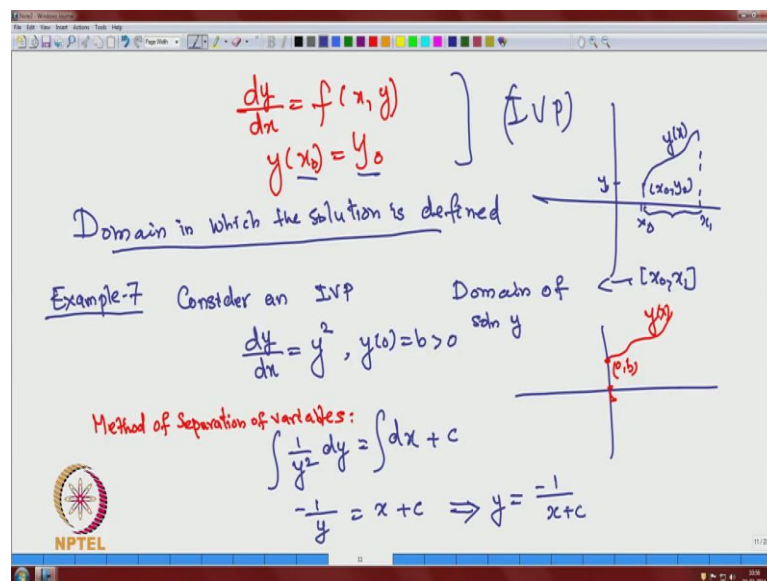 Note2 - Windows Journal
File Edit View Insert Actions Tools Help
Page Width
dy/dx = f(x, y)
y(x₀) = y₀
(IVP)
y(x)
y₀
(x₀, y₀)
x₀ x₁
Domain in which the solution is defined
[x₀, x₁]
Example-7 Consider an IVP
Domain of soln y
dy/dx = y², y(0) = b > 0
y(x)
(0, b)
Method of Separation of variables:
∫ 1/y² dy = ∫ dx + c
-1/y = x + c ⇒ y = -1/(x+c)
NPTEL